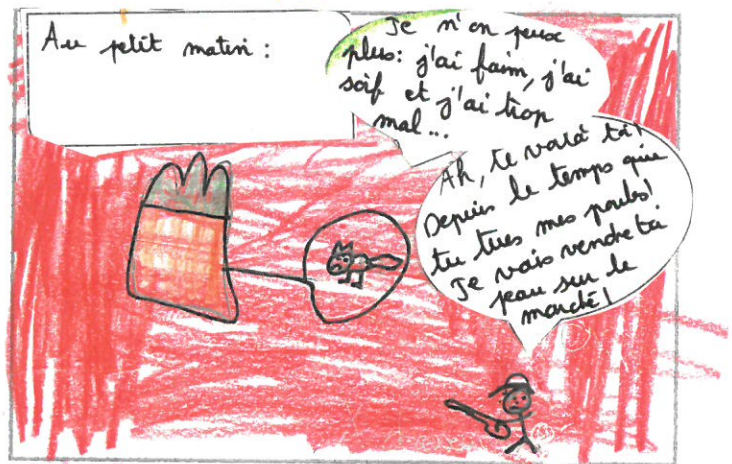 Au petit matin :
Je n'en peux
plus : j'ai faim, j'ai
soif et j'ai trop
mal...
Ah, te voilà toi !
Depuis le temps que
tu tues mes poules !
Je vais vendre ta
peau sur le
marché !